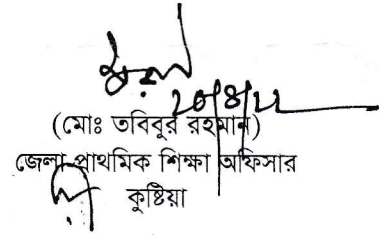 (মোঃ তবিবুর রহমান)
জেলা প্রাথমিক শিক্ষা অফিসার
কুষ্টিয়া